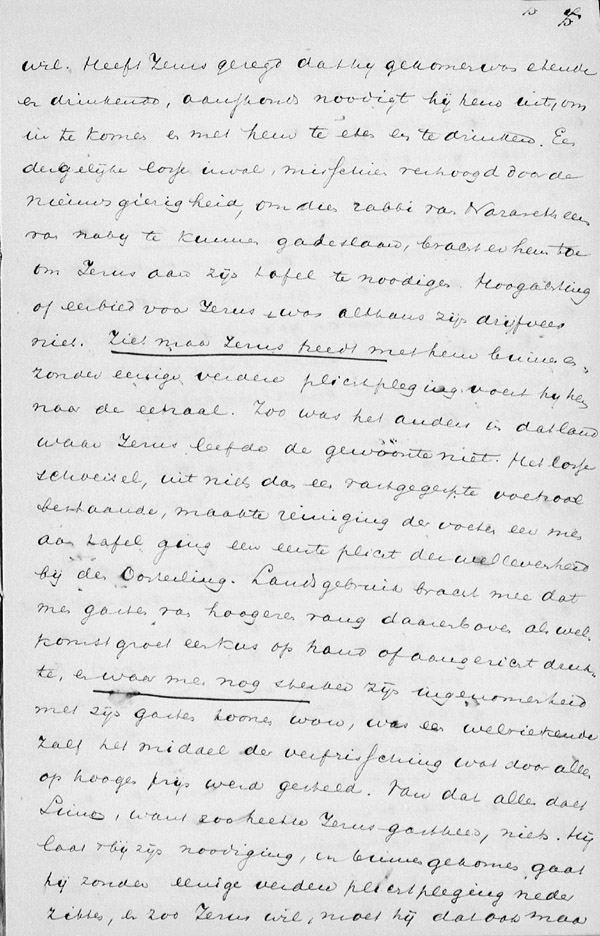 wil. Heeft Jezus gezegd dat hij gekomen was etende
en drinkende, aanstonds noodigt hij hem uit, om
in te komen en met hem te eten en te drinken. Een
dergelijke losse inval, misschien verhoogd door de
nieuwsgierigheid, om dien rabbi van Nazareth eens
van nabij te kunnen gadeslaan, bracht er hem toe
om Jezus aan zijn tafel te noodigen. Hoogachting
of eerbied voor Jezus, was althans zijn drijfveer
niet. Ziet maar Jezus treedt met hem binnen en
zonder eenige verdere plichtpleging voert hij hem
naar de eetzaal. Zoo was het anders in dat land
waar Jezus leefde de gewoonte niet. Het losse
schoeisel, uit niets dan een vastgegespte voetzool
bestaande, maakte reiniging der voeten eer men
aan tafel ging een eerste plicht der wellevenheid
bij den Oosterling. Landsgebruik bracht mee dat
men gasten van hoogeren rang daarenboven als wel-
komstgroet een kus op hand of aangezicht druk-
te, en waar men nog sterker zijn ingenomenheid
met zijn gasten toonen wou, was een welriekende
zalf het middel der verfrissching wat door allen
op hoogen prijs werd gesteld. Van dat alles doet
Simon, want zoo heette Jezus gastheer, niets. Hij
laat bij zijn noodiging, en binnengekomen gaat
hij zonder eenige verdere plichtpleging neder
zitten, en zoo Jezus wil, moet hij dat ook maar